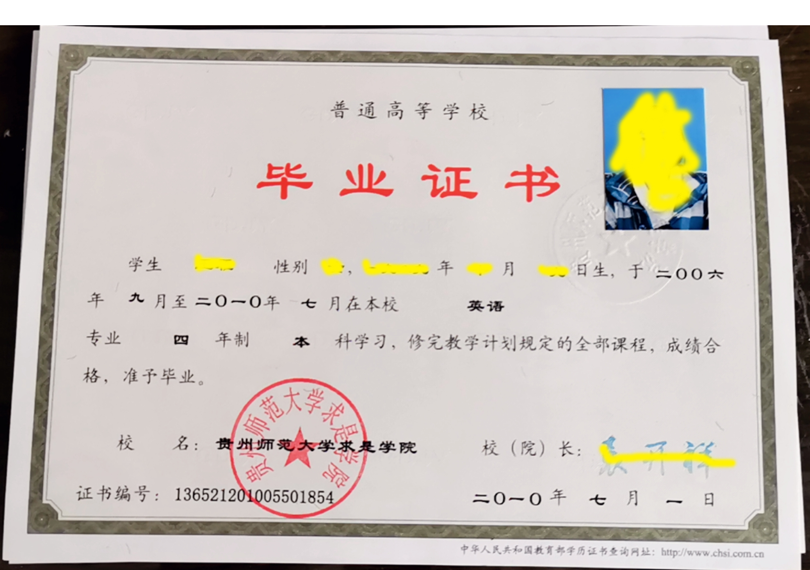 普通高等学校
毕业证书
学生 性别 , 年 月 日生，于 二〇〇六
年 九 月至 二〇一〇年 七 月在本校 英语
专业 四 年制 本 科学习，修完教学计划规定的全部课程，成绩合
格，准予毕业。
贵州师范大学求是学院
校 名：贵州师范大学求是学院 校（院）长：
证书编号：136521201005501854 二〇一〇年 七 月 一 日
中华人民共和国教育部学历证书查询网址：http://www.chsi.com.cn